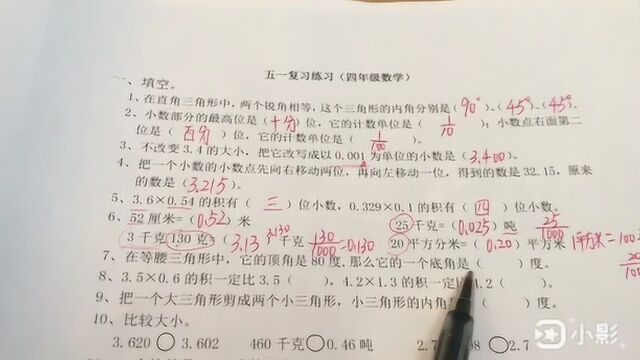 五一复习练习(四年级数学)
一、填空。
1、在直角三角形中,两个锐角相等,这个三角形的内角分别是(90°)、(45°)、(45°)。
2、小数部分的最高位是(十分)位,它的计数单位是(1/10);小数点右面第二
位是(百分)位,它的计数单位是(1/100)。
3、不改变3.4的大小,把它改写成以0.001为单位的小数是(3.400)。
4、把一个小数的小数点先向右移动两位,再向左移动一位,得到的数是32.15,原来
的数是(3.215)。
5、3.6×0.54的积有(三)位小数,0.329×0.1的积有(四)位小数。
6、52厘米=(0.52)米 25千克=(0.025)吨 25/1000
3千克130克=(3.13)千克 3.130 130/1000=0.130 20平方分米=(0.20)平方米 1平方米=100
20
7、在等腰三角形中,它的顶角是80度,那么它的一个底角是( )度。
8、3.5×0.6的积一定比3.5( ),4.2×1.3的积一定 4.2( )。
9、把一个大三角形剪成两个小三角形,小三角形的内角 ( )度。
10、比较大小。
3.620○3.602 460千克○0.46吨 2.7 08○2.7
小影